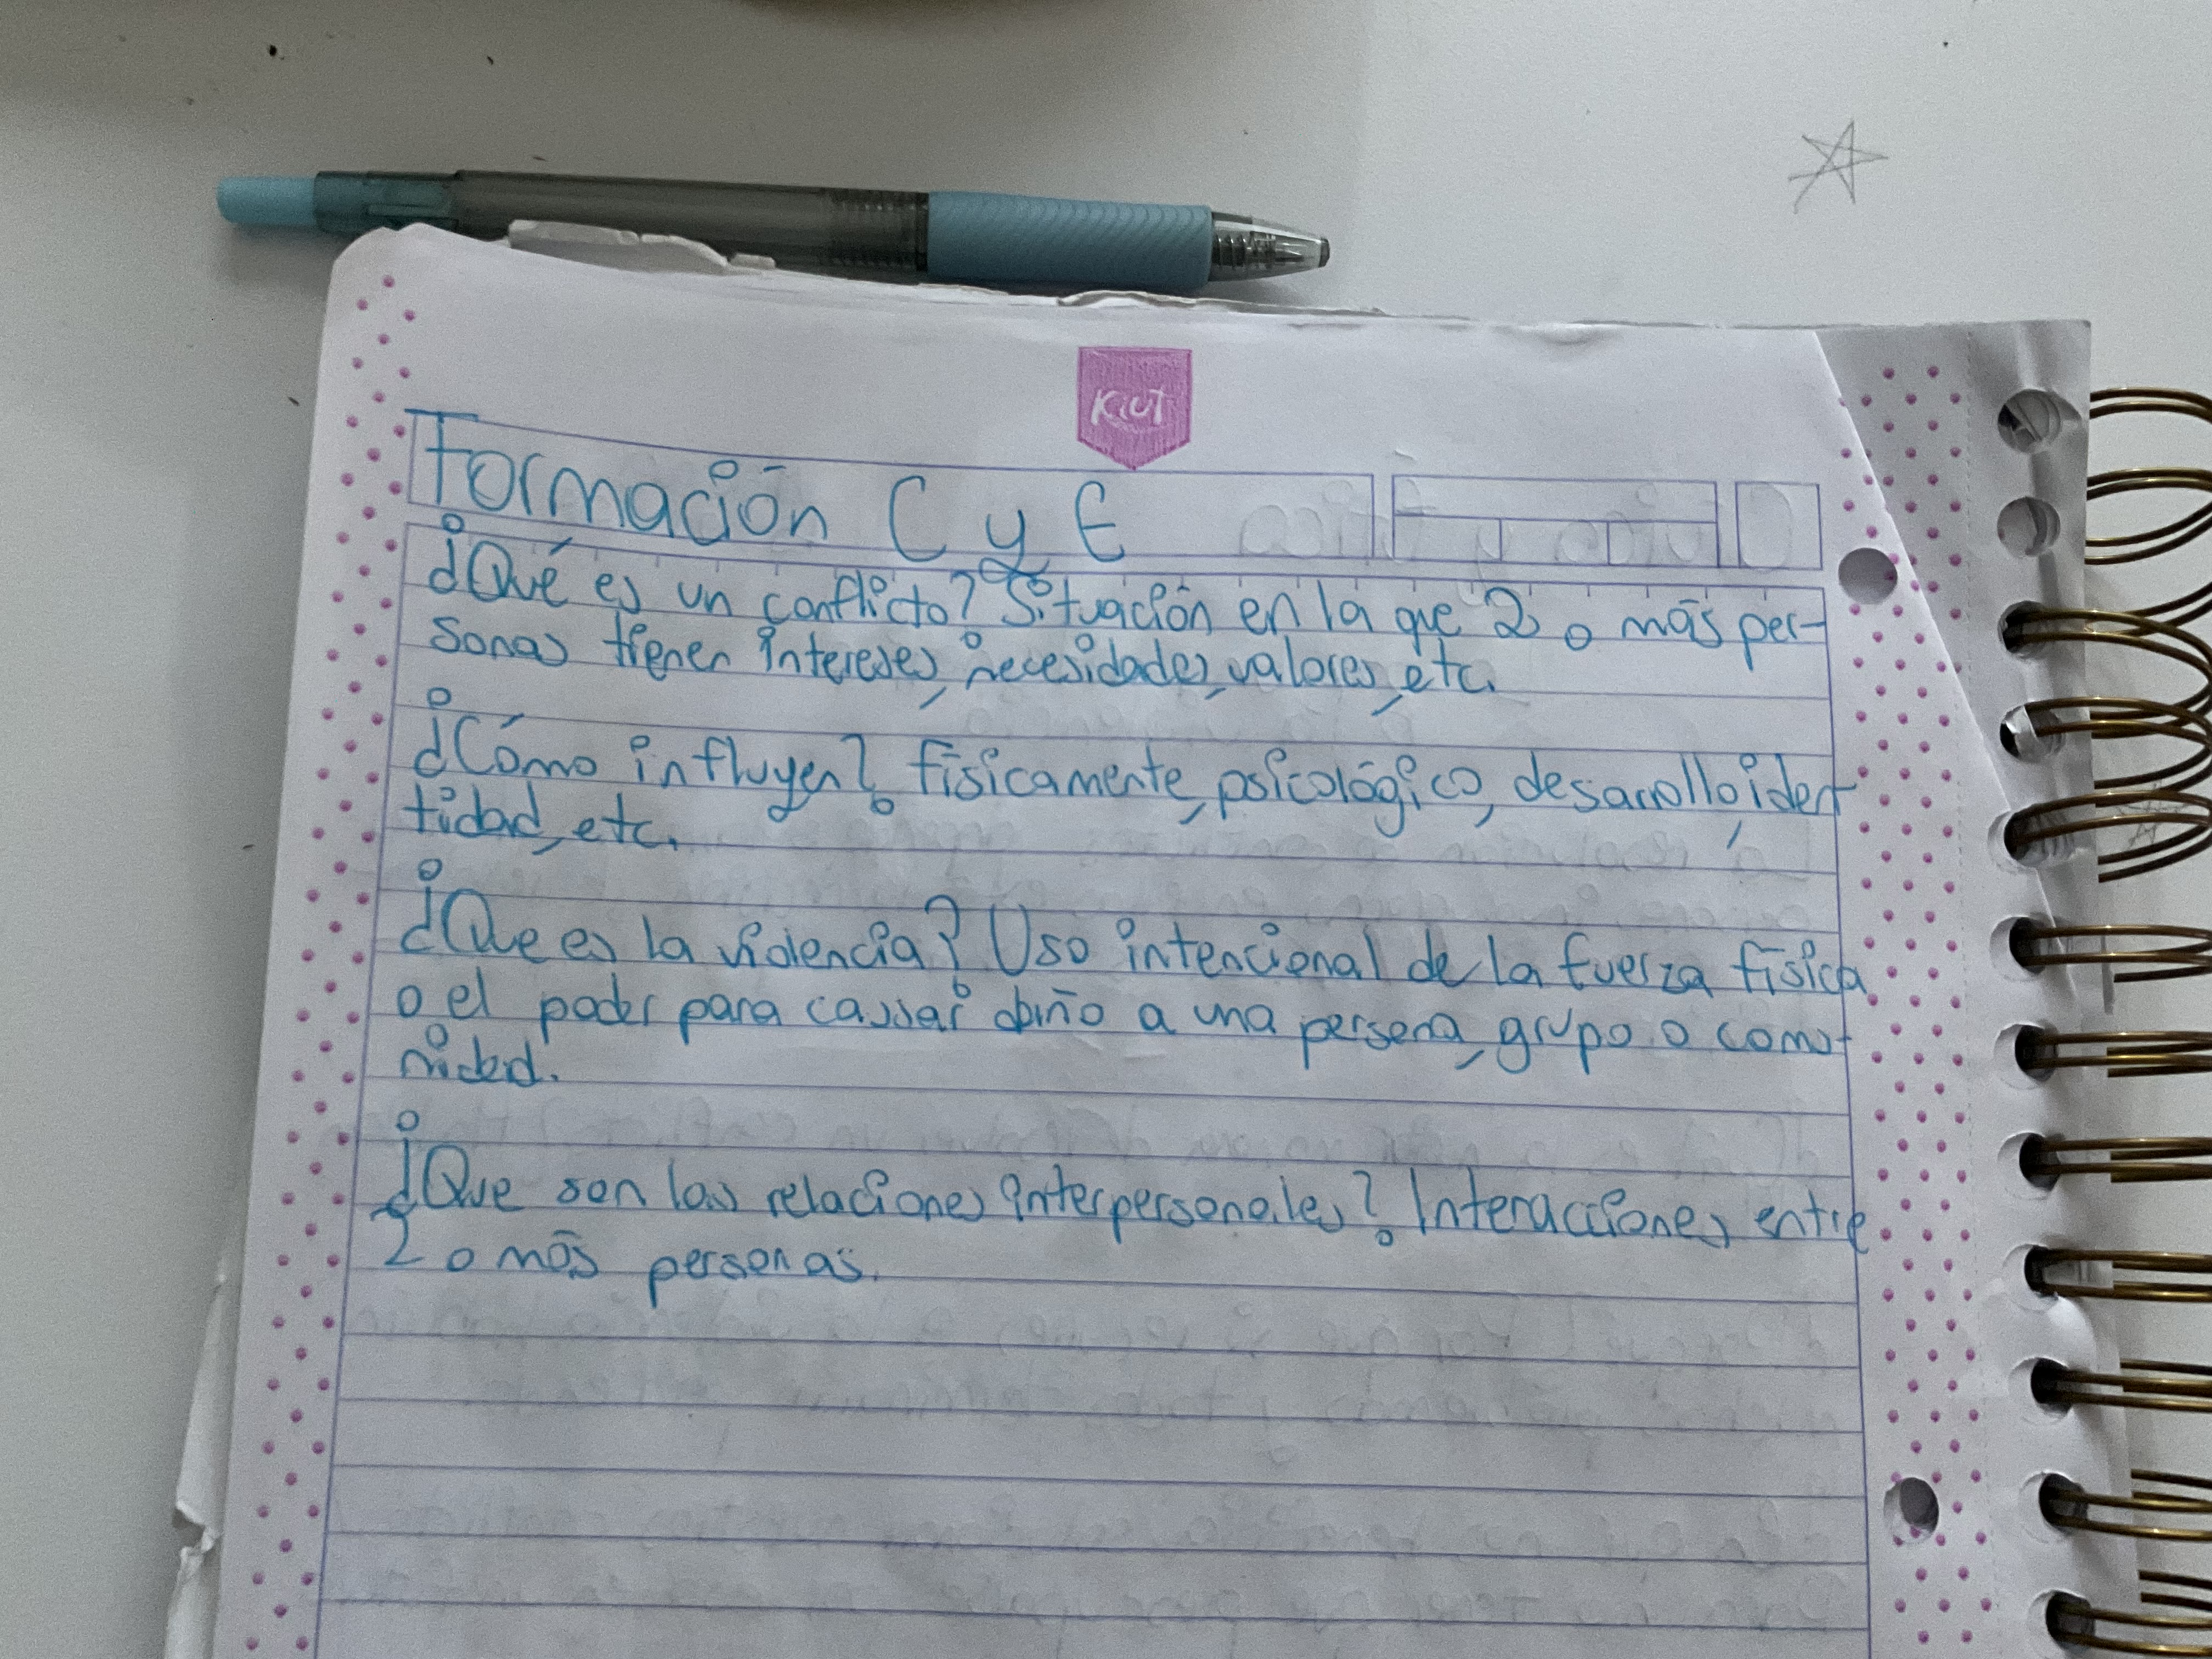 KIUT
Formación C y E
¿Qué es un conflicto? Situación en la que 2 o más per-
sonas tienen intereses, necesidades, valores, etc.
¿Cómo influyen? físicamente, psicológico, desarrollo, iden-
tidad, etc.
¿Que es la violencia? Uso intencional de la fuerza física
o el poder para causar daño a una persona, grupo o comu-
nidad.
¿Que son las relaciones interpersonales? Interacciones entre
2 o más personas.